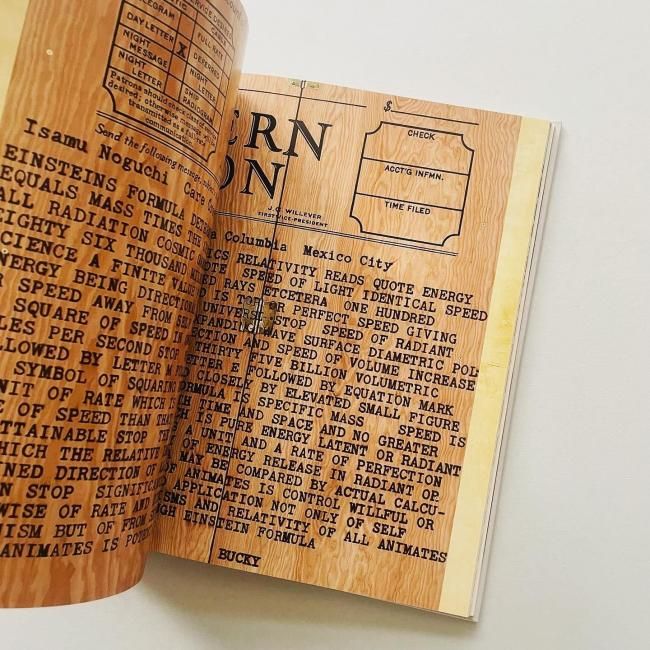 TELEGRAM
DAY LETTER
NIGHT MESSAGE
NIGHT LETTER
X
SERVICE DESIRED
CABLE
FULL RATE
DEFERRED
NIGHT LETTER
SHIP RADIOGRAM
Patrons should check class of service
desired; otherwise message will be
transmitted as a full-rate
communication.
Send the following message,
Isamu Noguchi Care
EINSTEINS FORMULA
EQUALS MASS TIMES THE
ALL RADIATION COSMIC
EIGHTY SIX THOUSAND
SCIENCE A FINITE VALUE
ENERGY BEING
SPEED AWAY FROM
SQUARE OF SPEED IN
LES PER SECOND STOP
LLOWED BY LETTER M
SYMBOL OF SQUARING
NIT OF RATE WHICH
E OF SPEED THAN THAT
TTAINABLE STOP
HICH THE RELATIVE
NED DIRECTION OF
N STOP
WISE OF RATE AND
NISM BUT OF FROM
ANIMATES IS
ERN
ON
$
CHECK
ACCT'G INFMN.
TIME FILED
J. C. WILLEVER
FIRST VICE-PRESIDENT
Columbia Mexico City
ICS RELATIVITY READS QUOTE ENERGY
OTE SPEED OF LIGHT IDENTICAL SPEED
ED RAYS ETCETERA ONE HUNDRED
IS TOP OR PERFECT SPEED GIVING
UNIVERSE STOP SPEED OF RADIANT
EXPANDING WAVE SURFACE DIAMETRIC POL
CTION AND SPEED OF VOLUME INCREASE
THIRTY FIVE BILLION VOLUMETRIC
ETTER E FOLLOWED BY EQUATION MARK
CLOSELY BY ELEVATED SMALL FIGURE
ORMULA IS SPECIFIC MASS SPEED IS
H TIME AND SPACE AND NO GREATER
H IS PURE ENERGY LATENT OR RADIANT
A UNIT AND A RATE OF PERFECTION
OF ENERGY RELEASE IN RADIANT OR
MAY BE COMPARED BY ACTUAL CALCU-
OF ANIMATES IS CONTROL WILLFUL OR
APPLICATION NOT ONLY OF SELF
SMS AND RELATIVITY OF ALL ANIMATES
GH EINSTEIN FORMULA
BUCKY